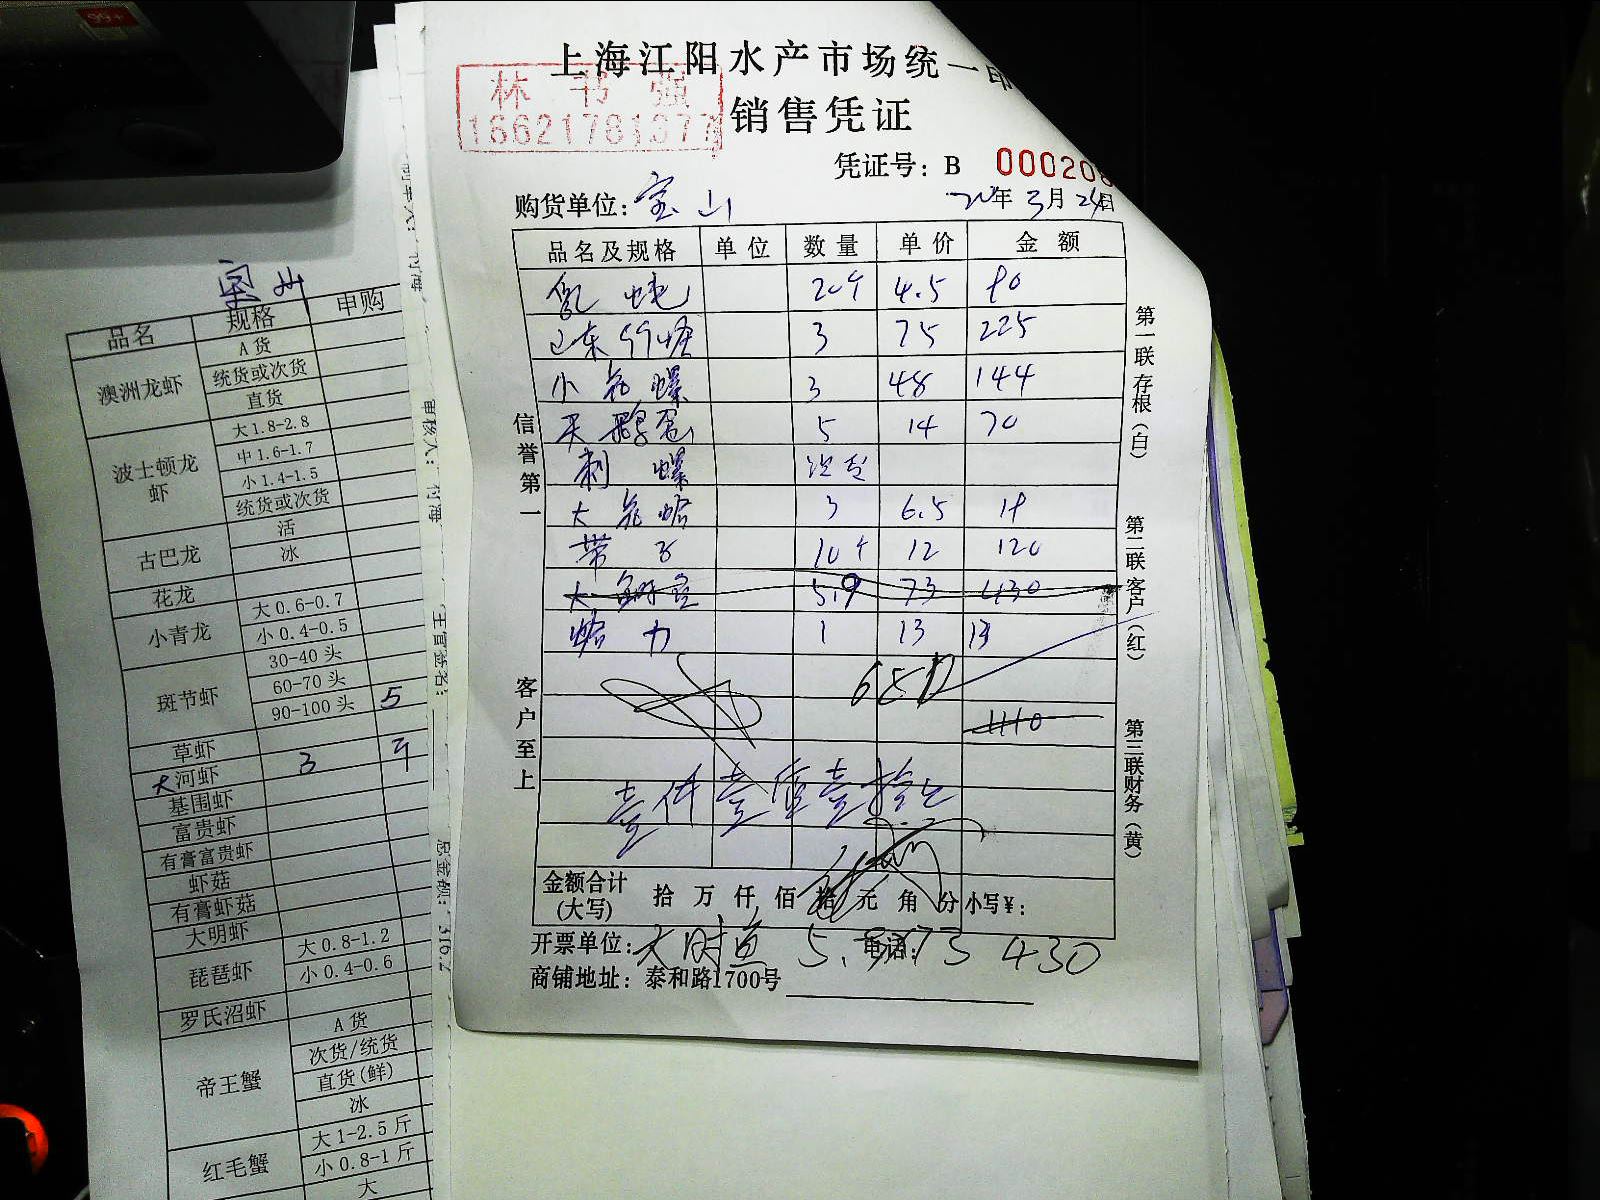 99+
上海江阳水产市场统一印
林书强
16621781377
销售凭证
凭证号：B 000208
购货单位：宝山
年 3月24日
品名及规格 单位 数量 单价 金额
20个 4.5 90
山东 3 75 225
小花螺 3 48 144
天鹅蛋 5 14 70
刺螺
大花蛤 3 6.5 19
带子 10个 12 120
大 5.9 73 430
蛤力 1 13 13
681
1110
壹仟壹佰壹拾
金额合计
(大写) 拾 万 仟 佰 拾 元 角 分 小写¥：
开票单位： 电话：
大 5. 73 430
商铺地址：泰和路1700号
信誉第一
客户至上
第一联存根（白）
第二联客户（红）
第三联财务（黄）
宝山
品名 规格 申购
澳洲龙虾 A货
统货或次货
直货
波士顿龙虾 大1.8-2.8
中1.6-1.7
小1.4-1.5
统货或次货
古巴龙 活
冰
花龙
小青龙 大0.6-0.7
小0.4-0.5
斑节虾 30-40头
60-70头
90-100头 5
草虾
大河虾 3 斤
基围虾
富贵虾
有膏富贵虾
虾菇
有膏虾菇
大明虾
琵琶虾 大0.8-1.2
小0.4-0.6
罗氏沼虾
帝王蟹 A货
次货/统货
直货(鲜)
冰
红毛蟹 大1-2.5斤
小0.8-1斤
大
审核人：付海
主管签名：
总金额：3162